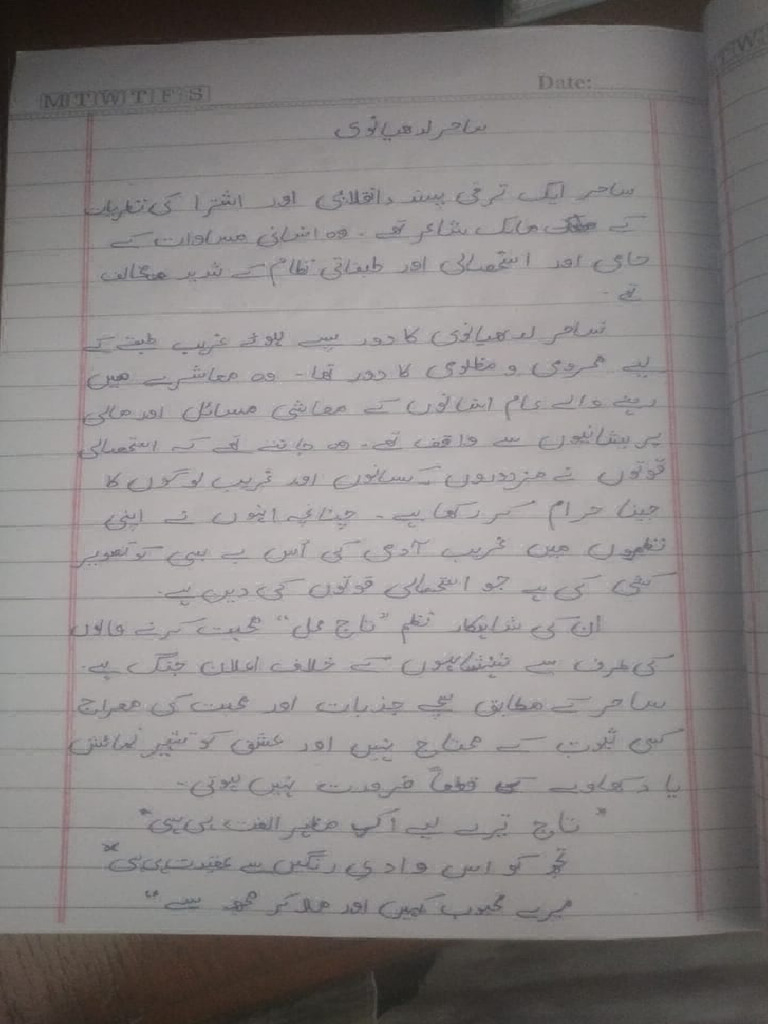 M T W T F S
Date:
ساحر لدھیانوی
ساحر ایک ترقی پسند، انقلابی اور اشتراکی نظریات
کے مالک شاعر تھے۔ وہ انسانی مساوات کے
حامی اور استحصالی اور طبقاتی نظام کے شدید مخالف
تھے۔
ساحر لدھیانوی کا دور پسے ہوئے غریب طبقے کے
لیے محرومی و مظلومی کا دور تھا۔ وہ معاشرے میں
رہنے والے عام انسانوں کے معاشی مسائل اور مالی
پریشانیوں سے واقف تھے۔ وہ جانتے تھے کہ استحصالی
قوتوں نے مزدوروں کسانوں اور غریب لوگوں کا
جینا حرام کر رکھا ہے۔ چنانچہ انہوں نے اپنی
نظموں میں غریب آدمی کی اس بے بسی کو تصویر
کشی کی ہے جو استحصالی قوتوں کی دین ہے۔
ان کی شاہکار نظم "تاج محل" محبت کرنے والوں
کی طرف سے شہنشاہوں کے خلاف اعلان جنگ ہے۔
ساحر کے مطابق سچے جذبات اور محبت کی معراج
کسی ثبوت کے محتاج نہیں اور عشق کو تشہیر نمائش
یا دکھاوے کی قطعاً ضرورت نہیں ہوتی۔
"تاج تیرے لیے اک مظہر الفت ہی سہی"
تجھ کو اس وادی رنگیں سے عقیدت ہی سہی"
میرے محبوب کہیں اور ملا کر مجھ سے"